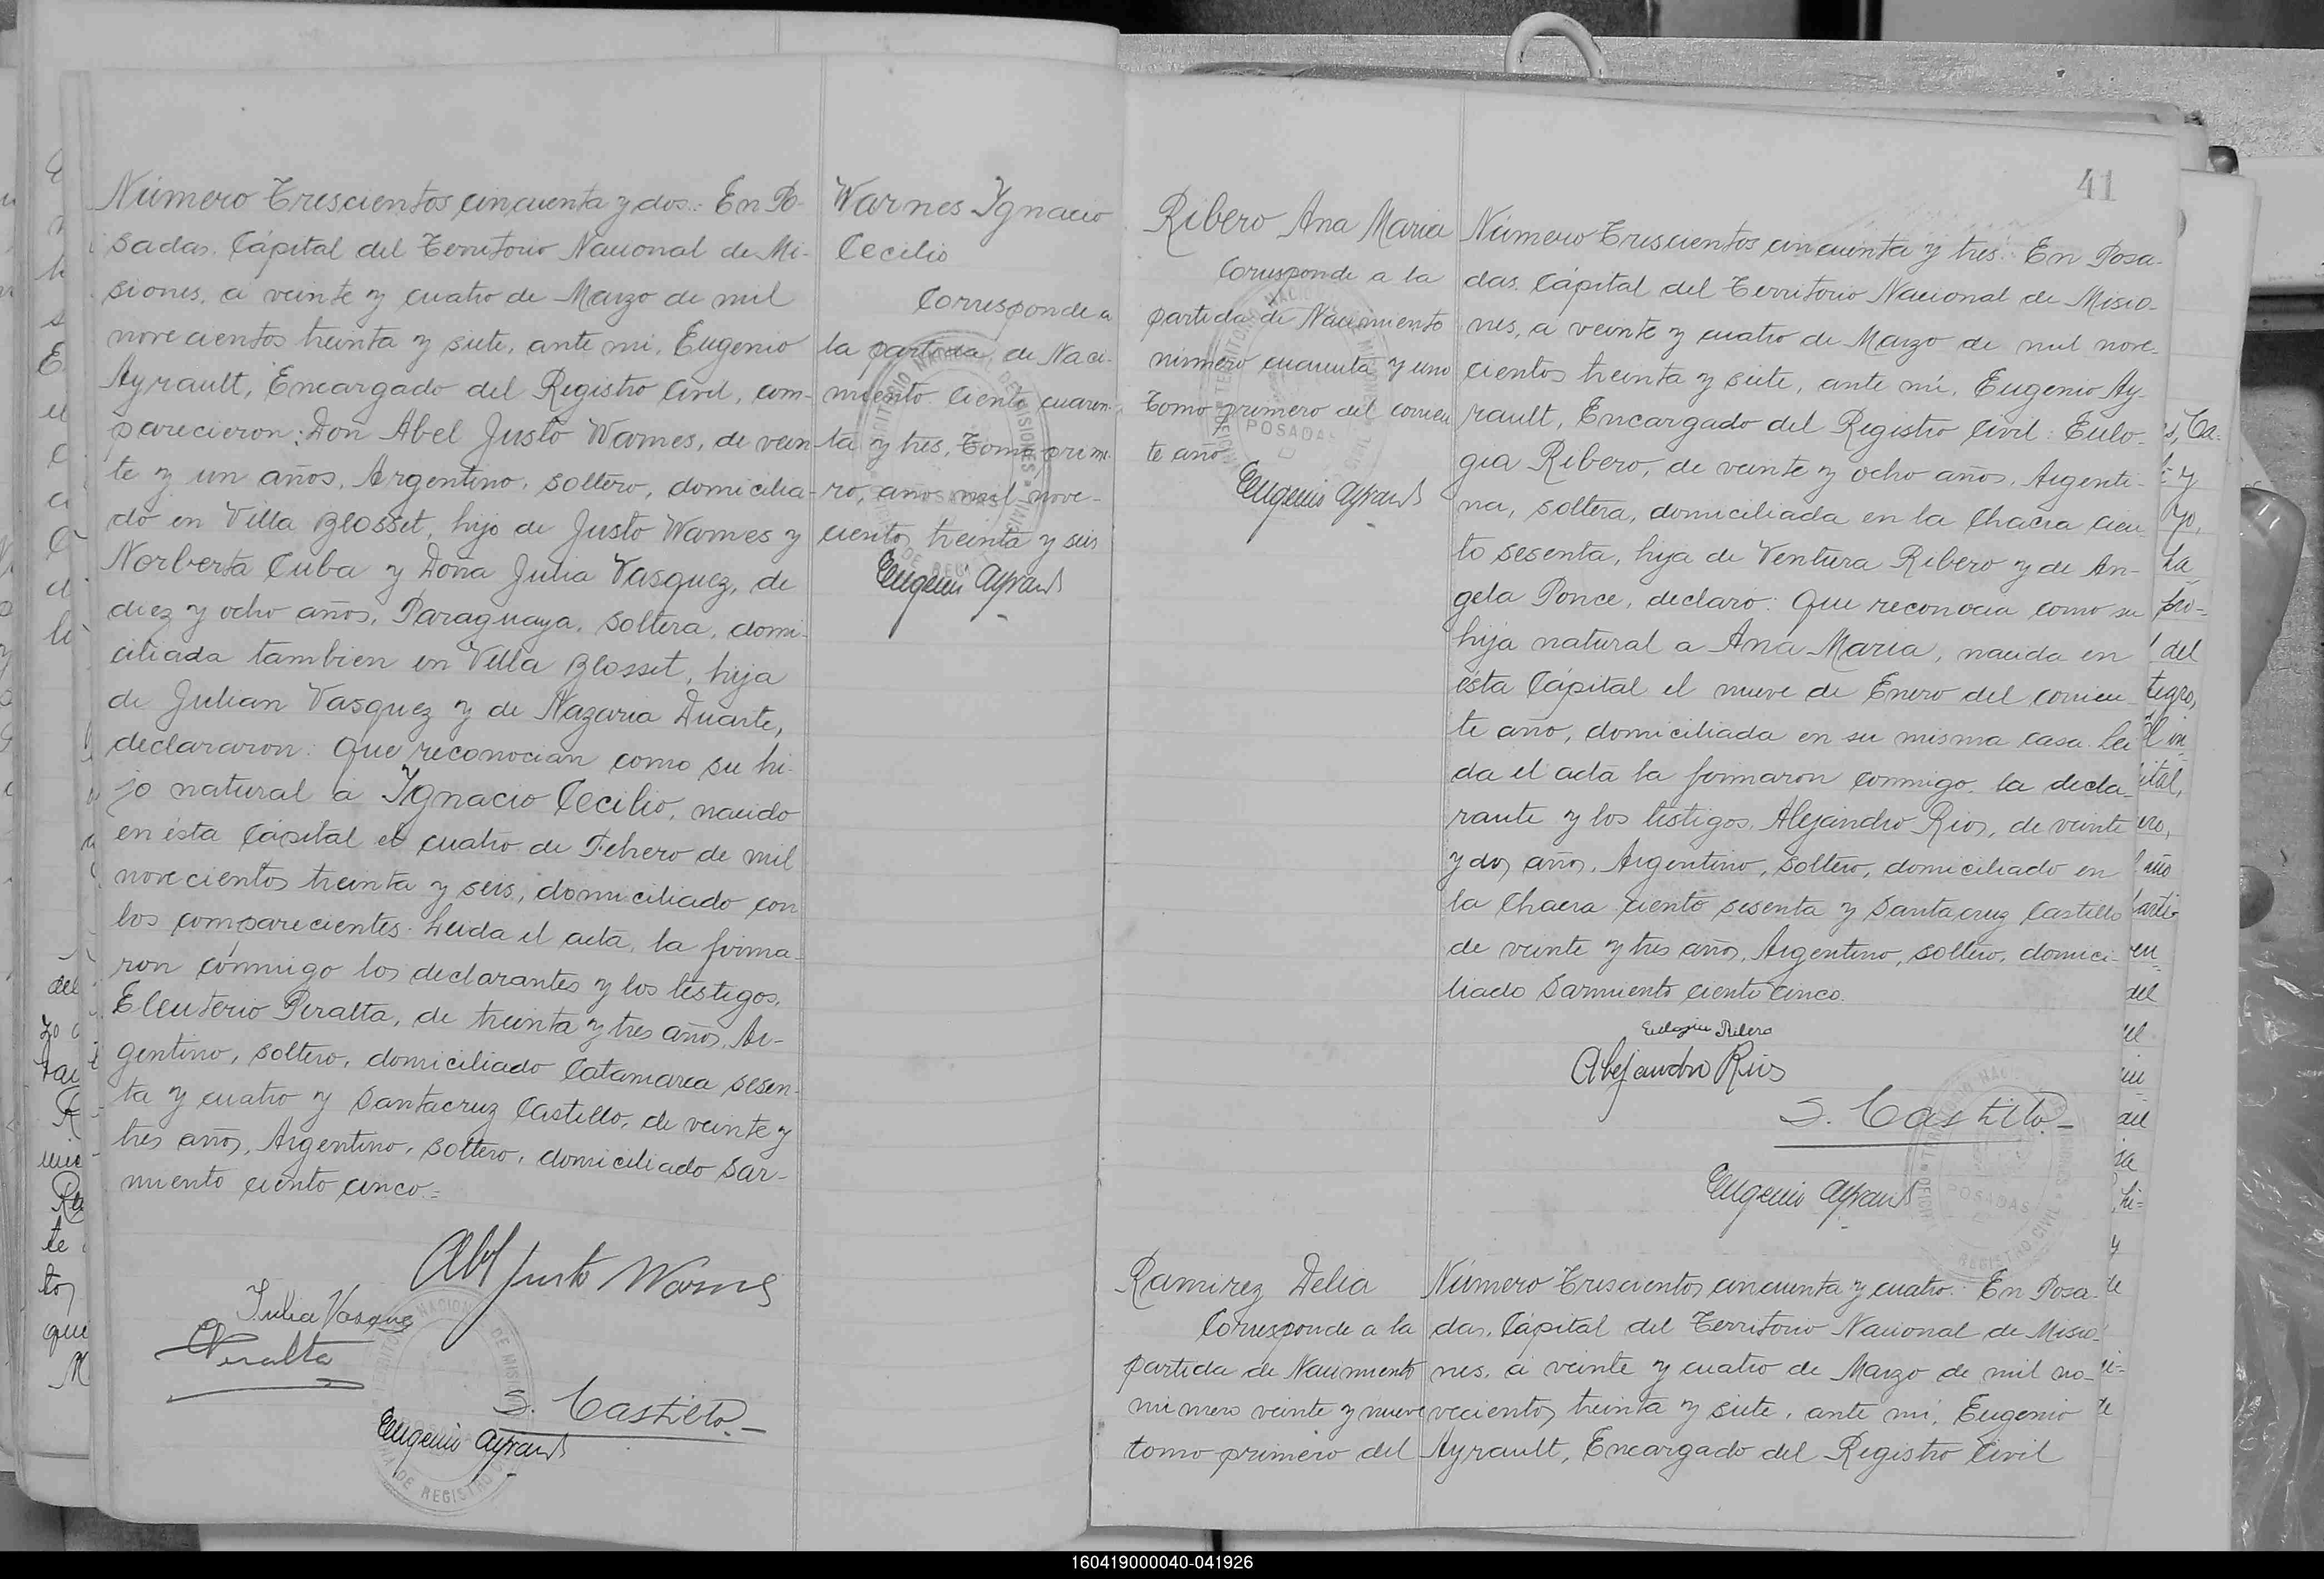 Número Trescientos cincuenta y dos.- En Po-
sadas, Cápital del Territorio Nacional de Mi-
siones, a veinte y cuatro de Marzo de mil
novecientos treinta y siete, ante mi, Eugenio
Ayrault, Encargado del Registro Civil, com-
parecieron: Don Abel Justo Warnes, de vein
te y un años, Argentino, soltero, domicilia-
do en Villa Blosset, hijo de Justo Warnes y
Norberta Cuba y Doña Julia Vasquez, de
diez y ocho años, Paraguaya, soltera, domi-
ciliada tambien en Villa Blosset, hija
de Julian Vasquez y de Nazaria Duarte,
declararon: Que reconocian como su hi-
jo natural a Ygnacio Cecilio, nacido
en ésta Cápital el cuatro de Febrero de mil
novecientos treinta y seis, domiciliado con
los comparecientes. Leida el acta, la firma-
ron conmigo los declarantes y los testigos,
Eleuterio Peralta, de treinta y tres años, Ar-
gentino, soltero, domiciliado Catamarca sesen-
ta y cuatro y Santacruz Castillo, de veinte y
tres años, Argentino, soltero, domiciliado Sar-
miento ciento cinco.=
Abel Justo Warnes
Julia Vasquez
Peralta
S. Castillo.-
Eugenio Ayrault
Warnes Ygnacio
Cecilio
Corresponde a
la partida de Naci-
miento ciento cuaren-
ta y tres, Tomo prime-
ro, año mil nove-
cientos treinta y seis
Eugenio Ayrault
41
Ribero Ana Maria
Corresponde a la
partida de Nacimiento
número cuarenta y uno
Tomo primero del corrien
te año
Eugenio Ayrault
Número Trescientos cincuenta y tres.- En Posa-
das, Cápital del Territorio Nacional de Misio-
nes, a veinte y cuatro de Marzo de mil nove-
cientos treinta y siete, ante mí, Eugenio Ay-
rault, Encargado del Registro Civil: Eulo-
gia Ribero, de veinte y ocho años, Argenti-
na, soltera, domiciliada en la Chacra cien-
to sesenta, hija de Ventura Ribero y de An-
gela Ponce, declaró: Que reconocia como su
hija natural a Ana Maria, nacida en
ésta Cápital el nueve de Enero del corrien-
te año, domiciliada en su misma casa. Lei
da el acta la firmaron conmigo la decla-
rante y los testigos, Alejandro Rios, de veinte
y dos años, Argentino, soltero, domiciliado en
la Chacra ciento sesenta y Santacruz Castillo
de veinte y tres años, Argentino, soltero, domici-
liado Sarmiento ciento cinco.
Eulogia Ribero
Alejandro Rios
S. Castillo.-
Eugenio Ayrault
POSADAS
REGISTRO CIVIL
Ramirez Delia
Corresponde a la
partida de Nacimiento
número veinte y nueve
tomo primero del
Número Trescientos cincuenta y cuatro.- En Posa-
das, Cápital del Territorio Nacional de Misio-
nes, a veinte y cuatro de Marzo de mil no-
vecientos treinta y siete, ante mi, Eugenio
Ayrault, Encargado del Registro Civil
160419000040-041926